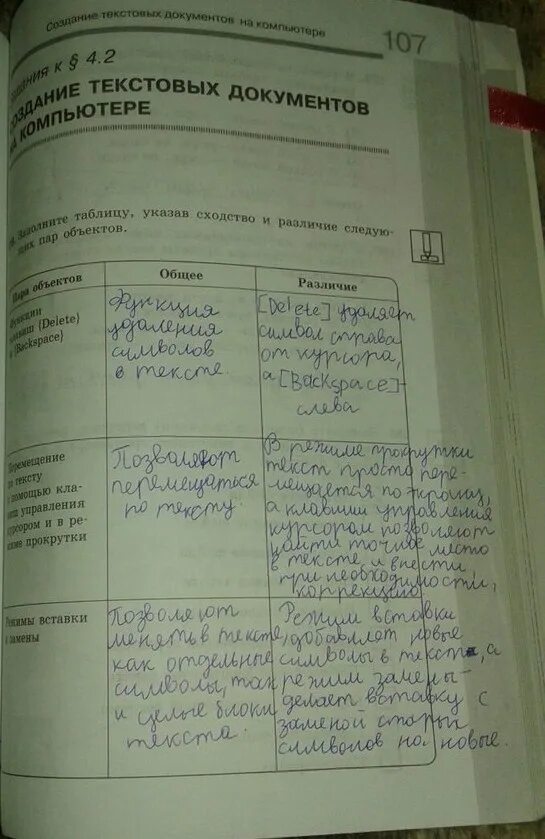 Создание текстовых документов на компьютере
107
к § 4.2
СОЗДАНИЕ ТЕКСТОВЫХ ДОКУМЕНТОВ
НА КОМПЬЮТЕРЕ
Заполните таблицу, указав сходство и различие следую-
щих пар объектов.
Пара объектов
Общее
Различие
Функции
клавиш {Delete}
и {Backspace}
Функция
удаления
символов
в тексте.
[Delete] удаляет
символ справа
от курсора,
а [Backspace]-
слева
Перемещение
по тексту
с помощью кла-
виш управления
курсором и в ре-
жиме прокрутки
Позволяют
перемещаться
по тексту.
В режиме прокрутки
текст просто пере-
мещается по
а клавиши управления
курсором позволяют
найти точное место
в тексте и внести
при необходимости,
коррекцию
Режимы вставки
и замены
Позволяют
менять в тексте,
как отдельные
символы, так
и целые блоки
текста.
Режим вставки
добавляет новые
символы в текст, а
режим замены-
делает вставку с
заменой старых
символов на новые.